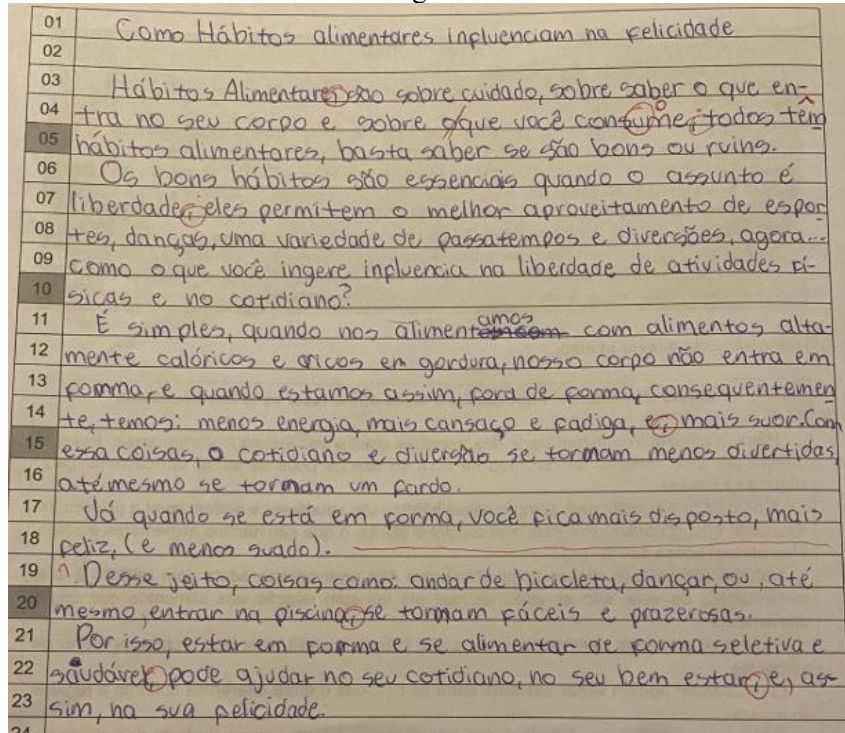 01 Como Hábitos alimentares influenciam na felicidade
02
03 Hábitos Alimentares, são sobre cuidado, sobre saber o que en-
04 tra no seu corpo e sobre o que você consume, todos têm
05 hábitos alimentares, basta saber se são bons ou ruins.
06 Os bons hábitos são essenciais quando o assunto é
07 liberdade, eles permitem o melhor aproveitamento de espor
08 tes, danças, uma variedade de passatempos e diversões, agora...
09 como o que você ingere influencia na liberdade de atividades fí-
10 sicas e no cotidiano?
11 É simples, quando nos alimentamos com alimentos alta-
12 mente calóricos e ricos em gordura, nosso corpo não entra em
13 forma, e quando estamos assim, fora de forma, consequentemen
14 te, temos: menos energia, mais cansaço e fadiga, e, mais suor. Com
15 essa coisas, o cotidiano e diversão se tornam menos divertidas,
16 até mesmo se tornam um fardo.
17 Já quando se está em forma, você fica mais disposto, mais
18 feliz, (e menos suado).
19 Desse jeito, coisas como: andar de bicicleta, dançar, ou, até
20 mesmo, entrar na piscina, se tornam fáceis e prazerosas.
21 Por isso, estar em forma e se alimentar de forma seletiva e
22 saudável, pode ajudar no seu cotidiano, no seu bem estar, e, as-
23 sim, na sua felicidade.